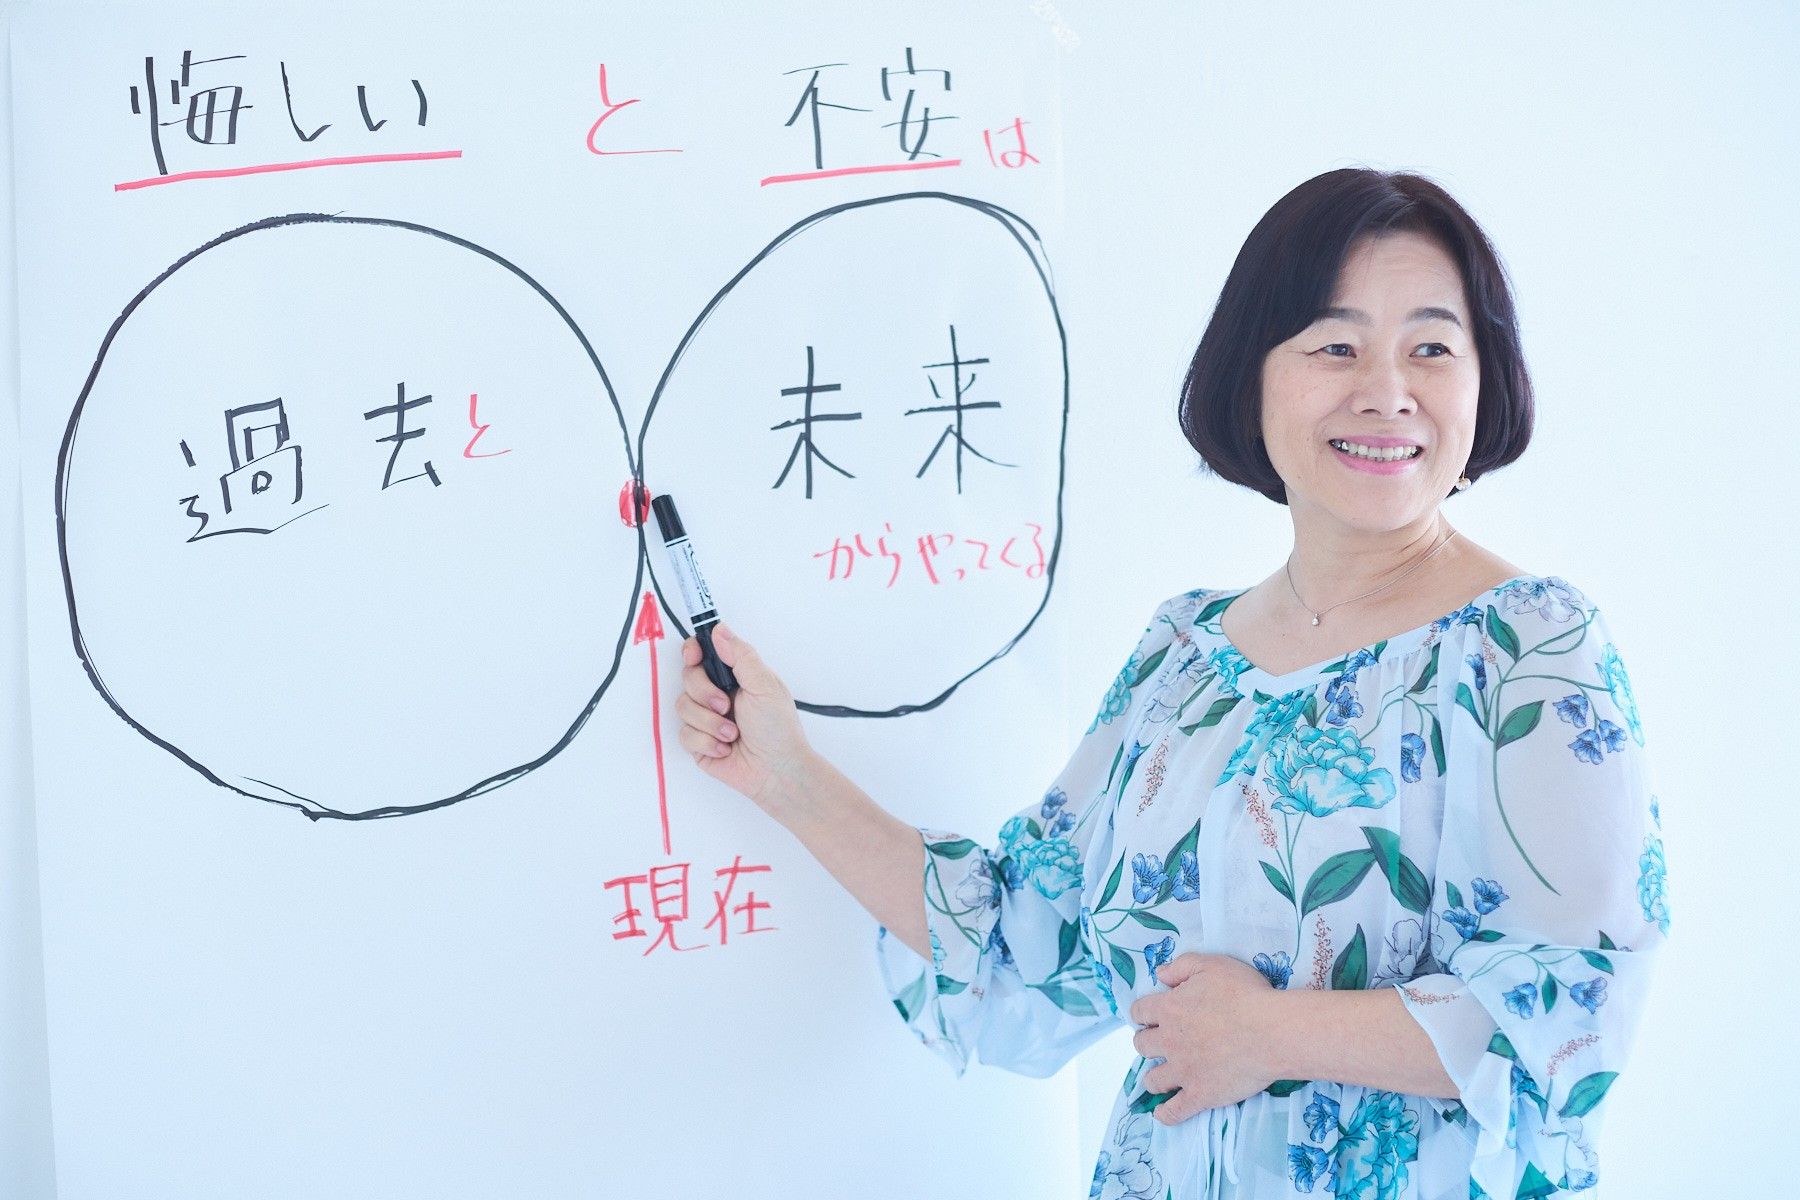 悔しい と 不安は
過去と 未来
からやってくる
現在